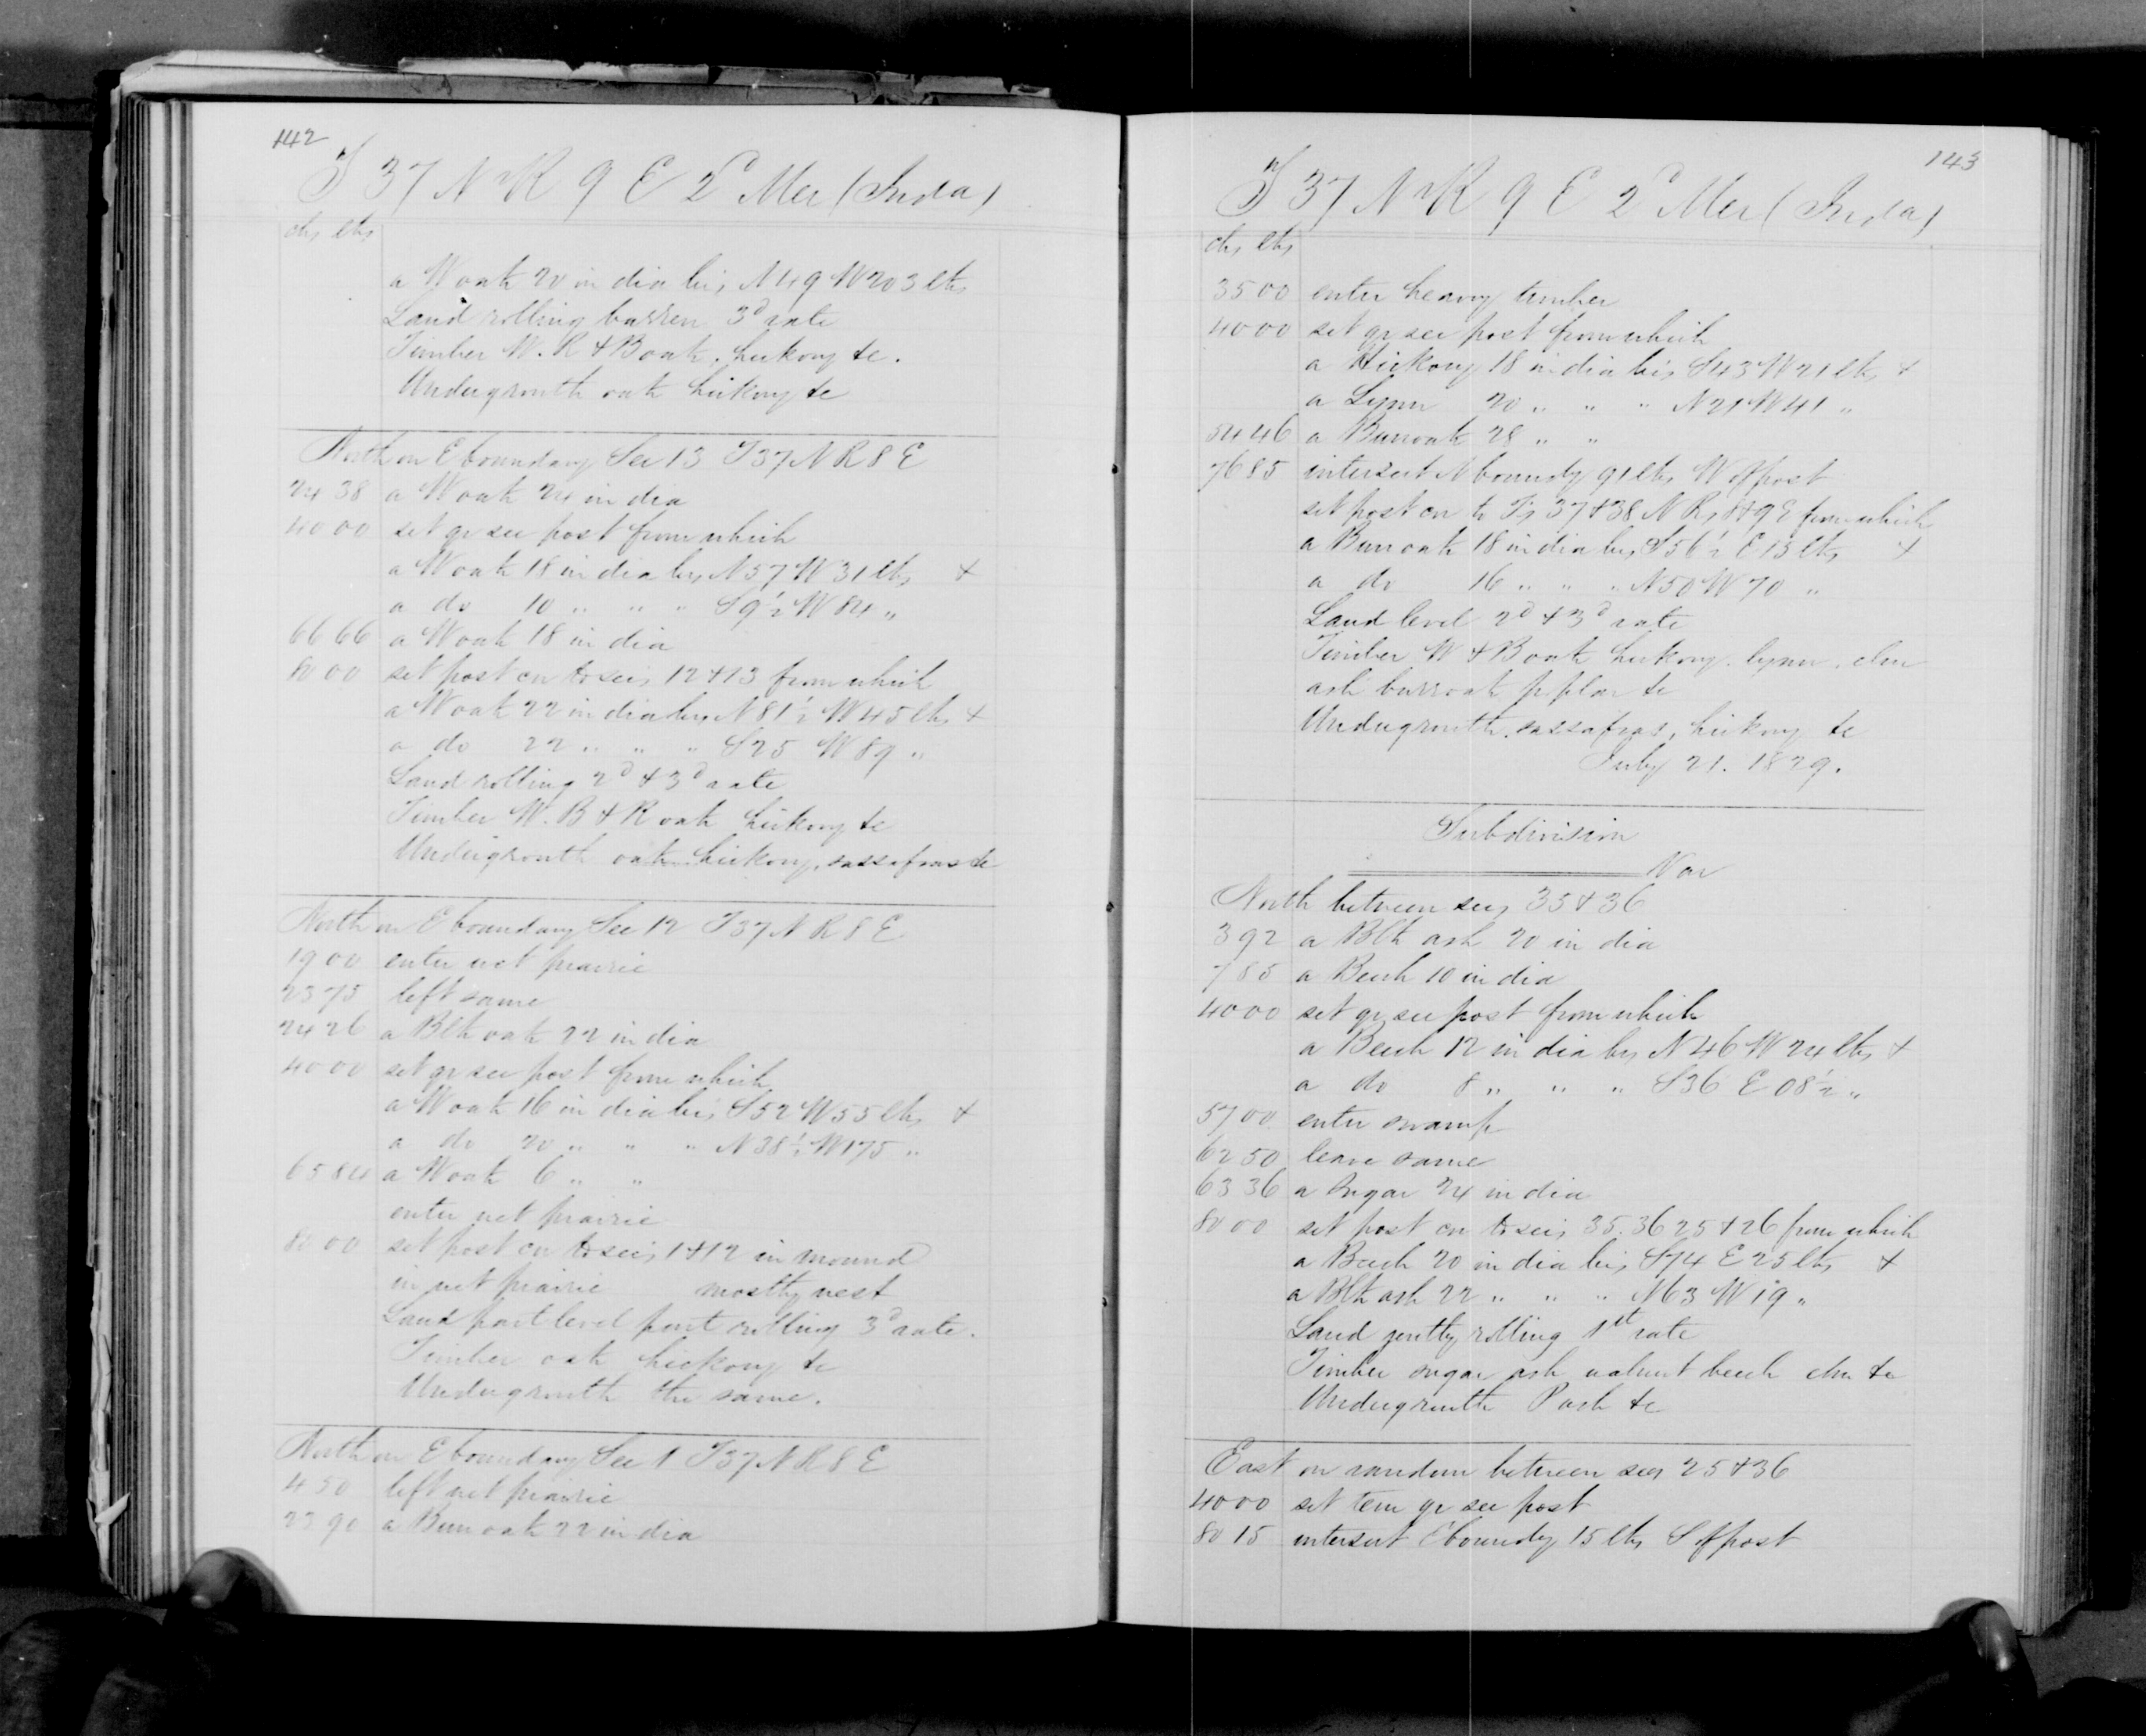 142
T 37 N R 9 E 2d Mer (Inda)
chs lks
a W oak 20 in dia brs N 49 W 203 lks
Land rolling barren 3d rate
Timber W. R & B oak, hickory &c.
Undergrowth oak hickory &c
North on E boundary Sec 13 T 37 N R 8 E
24 38 a W oak 24 in dia
40 00 set qr sec post from which
a W oak 18 in dia brs N 57 W 31 lks +
a do 10 " " " S 9½ W 84 "
66 66 a W oak 18 in dia
80 00 set post cor to secs 12 & 13 from which
a W oak 22 in dia brs N 81½ W 45 lks +
a do 22 " " " S 25 W 89 "
Land rolling 2d & 3d rate
Timber W. B & R oak hickory &c
Undergrowth oak hickory, sassafras &c
North on E boundary Sec 12 T 37 N R 8 E
19 00 enter wet prairie
23 75 left same
24 26 a Blk oak 22 in dia
40 00 set qr sec post from which
a W oak 16 in dia brs S 52 W 55 lks +
a do 20 " " " N 38½ W 175 "
65 84 a W oak 6 " "
enter wet prairie
80 00 set post cor to secs 1 & 12 in mound
in wet prairie mostly west
Land part level part rolling 3d rate.
Timber oak hickory &c
Undergrowth the same.
North on E boundary Sec 1 T 37 N R 8 E
4 50 left wet prairie
22 90 a Burr oak 22 in dia
143
T 37 N R 9 E 2d Mer (Inda)
chs lks
35 00 enter heavy timber
40 00 set qr sec post from which
a Hickory 18 in dia brs S 43 W 21 lks +
a Lynn 20 " " " N 21 W 41 "
54 46 a Burr oak 28 " "
76 85 intersect N boundy 91 lks W of post
set post cor to Ts 37 & 38 N Rs 8 & 9 E from which
a Burr oak 18 in dia brs S 56½ E 15 lks +
a do 16 " " " N 50 W 70 "
Land level 2d & 3d rate
Timber W & B oak hickory. lynn. elm
ash burr oak poplar &c
Undergrowth. sassafras, hickory &c
July 21. 1829.
Subdivision
Var
North between secs 35 & 36
3 92 a Blk ash 20 in dia
7 85 a Beech 10 in dia
40 00 set qr sec post from which
a Beech 12 in dia brs N 46 W 24 lks +
a do 8 " " " S 36 E 08½ "
57 00 enter swamp
62 50 leave same
63 36 a Sugar 24 in dia
80 00 set post cor to secs 35. 36 25 & 26 from which
a Beech 20 in dia brs S 74 E 25 lks +
a Blk ash 22 " " " N 63 W 19 "
Land gently rolling 1st rate
Timber sugar ash walnut beech elm &c
Undergrowth P ash &c
East on random between secs 25 & 36
40 00 set tem qr sec post
80 15 intersect E boundy 15 lks S of post